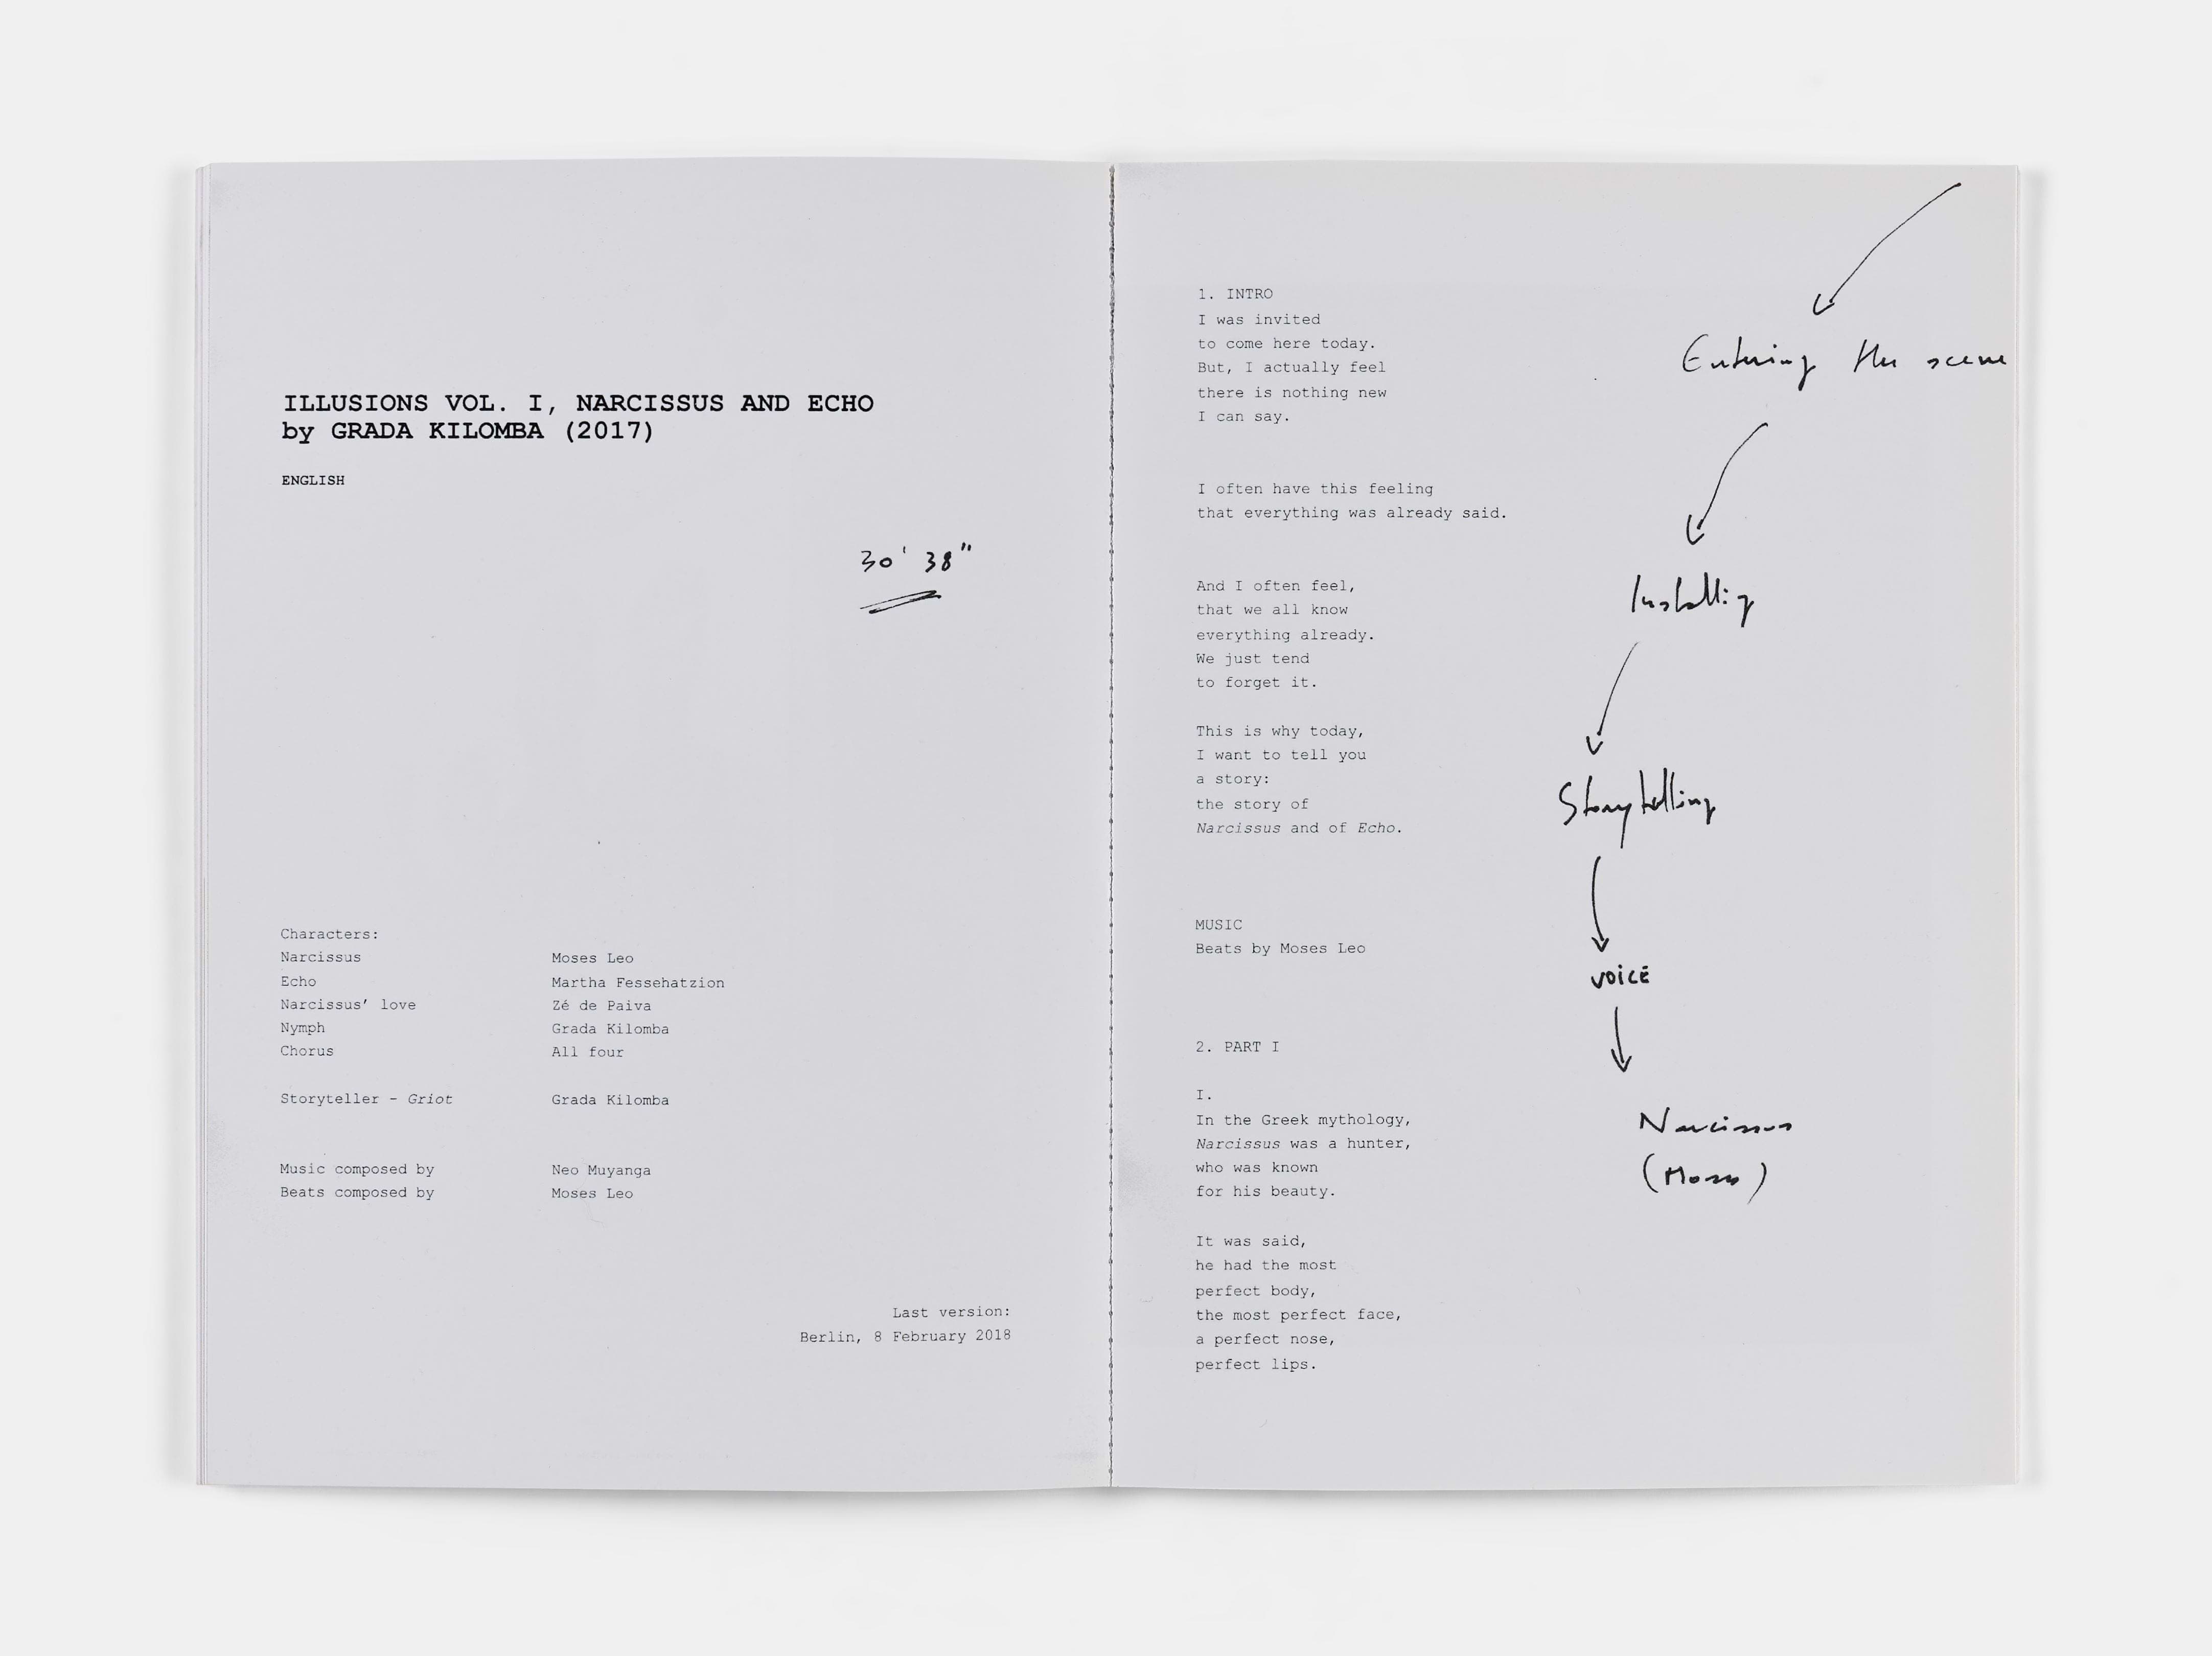 ILLUSIONS VOL. I, NARCISSUS AND ECHO
by GRADA KILOMBA (2017)
ENGLISH
30' 38"
Characters:
Narcissus Moses Leo
Echo Martha Fessehatzion
Narcissus' love Zé de Paiva
Nymph Grada Kilomba
Chorus All four
Storyteller - Griot Grada Kilomba
Music composed by Neo Muyanga
Beats composed by Moses Leo
Last version:
Berlin, 8 February 2018
1. INTRO
I was invited
to come here today.
But, I actually feel
there is nothing new
I can say.
I often have this feeling
that everything was already said.
And I often feel,
that we all know
everything already.
We just tend
to forget it.
This is why today,
I want to tell you
a story:
the story of
Narcissus and of Echo.
MUSIC
Beats by Moses Leo
2. PART I
I.
In the Greek mythology,
Narcissus was a hunter,
who was known
for his beauty.
It was said,
he had the most
perfect body,
the most perfect face,
a perfect nose,
perfect lips.
Entering the scene
Storytelling
voice
Narcissus
(Moses)